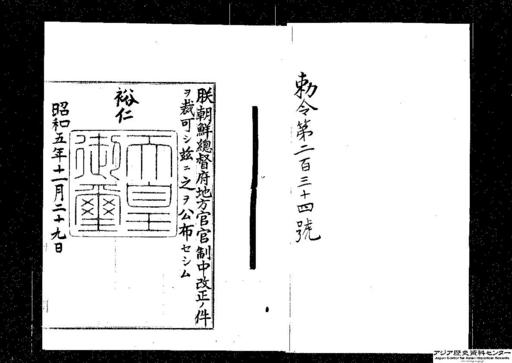 勅令第二百三十四號
朕朝鮮總督府地方官官制中改正ノ件
ヲ裁可シ玆ニ之ヲ公布セシム
裕仁
天皇
御璽
昭和五年十一月二十九日
アジア歴史資料センター
Japan Center for Asian Historical Records